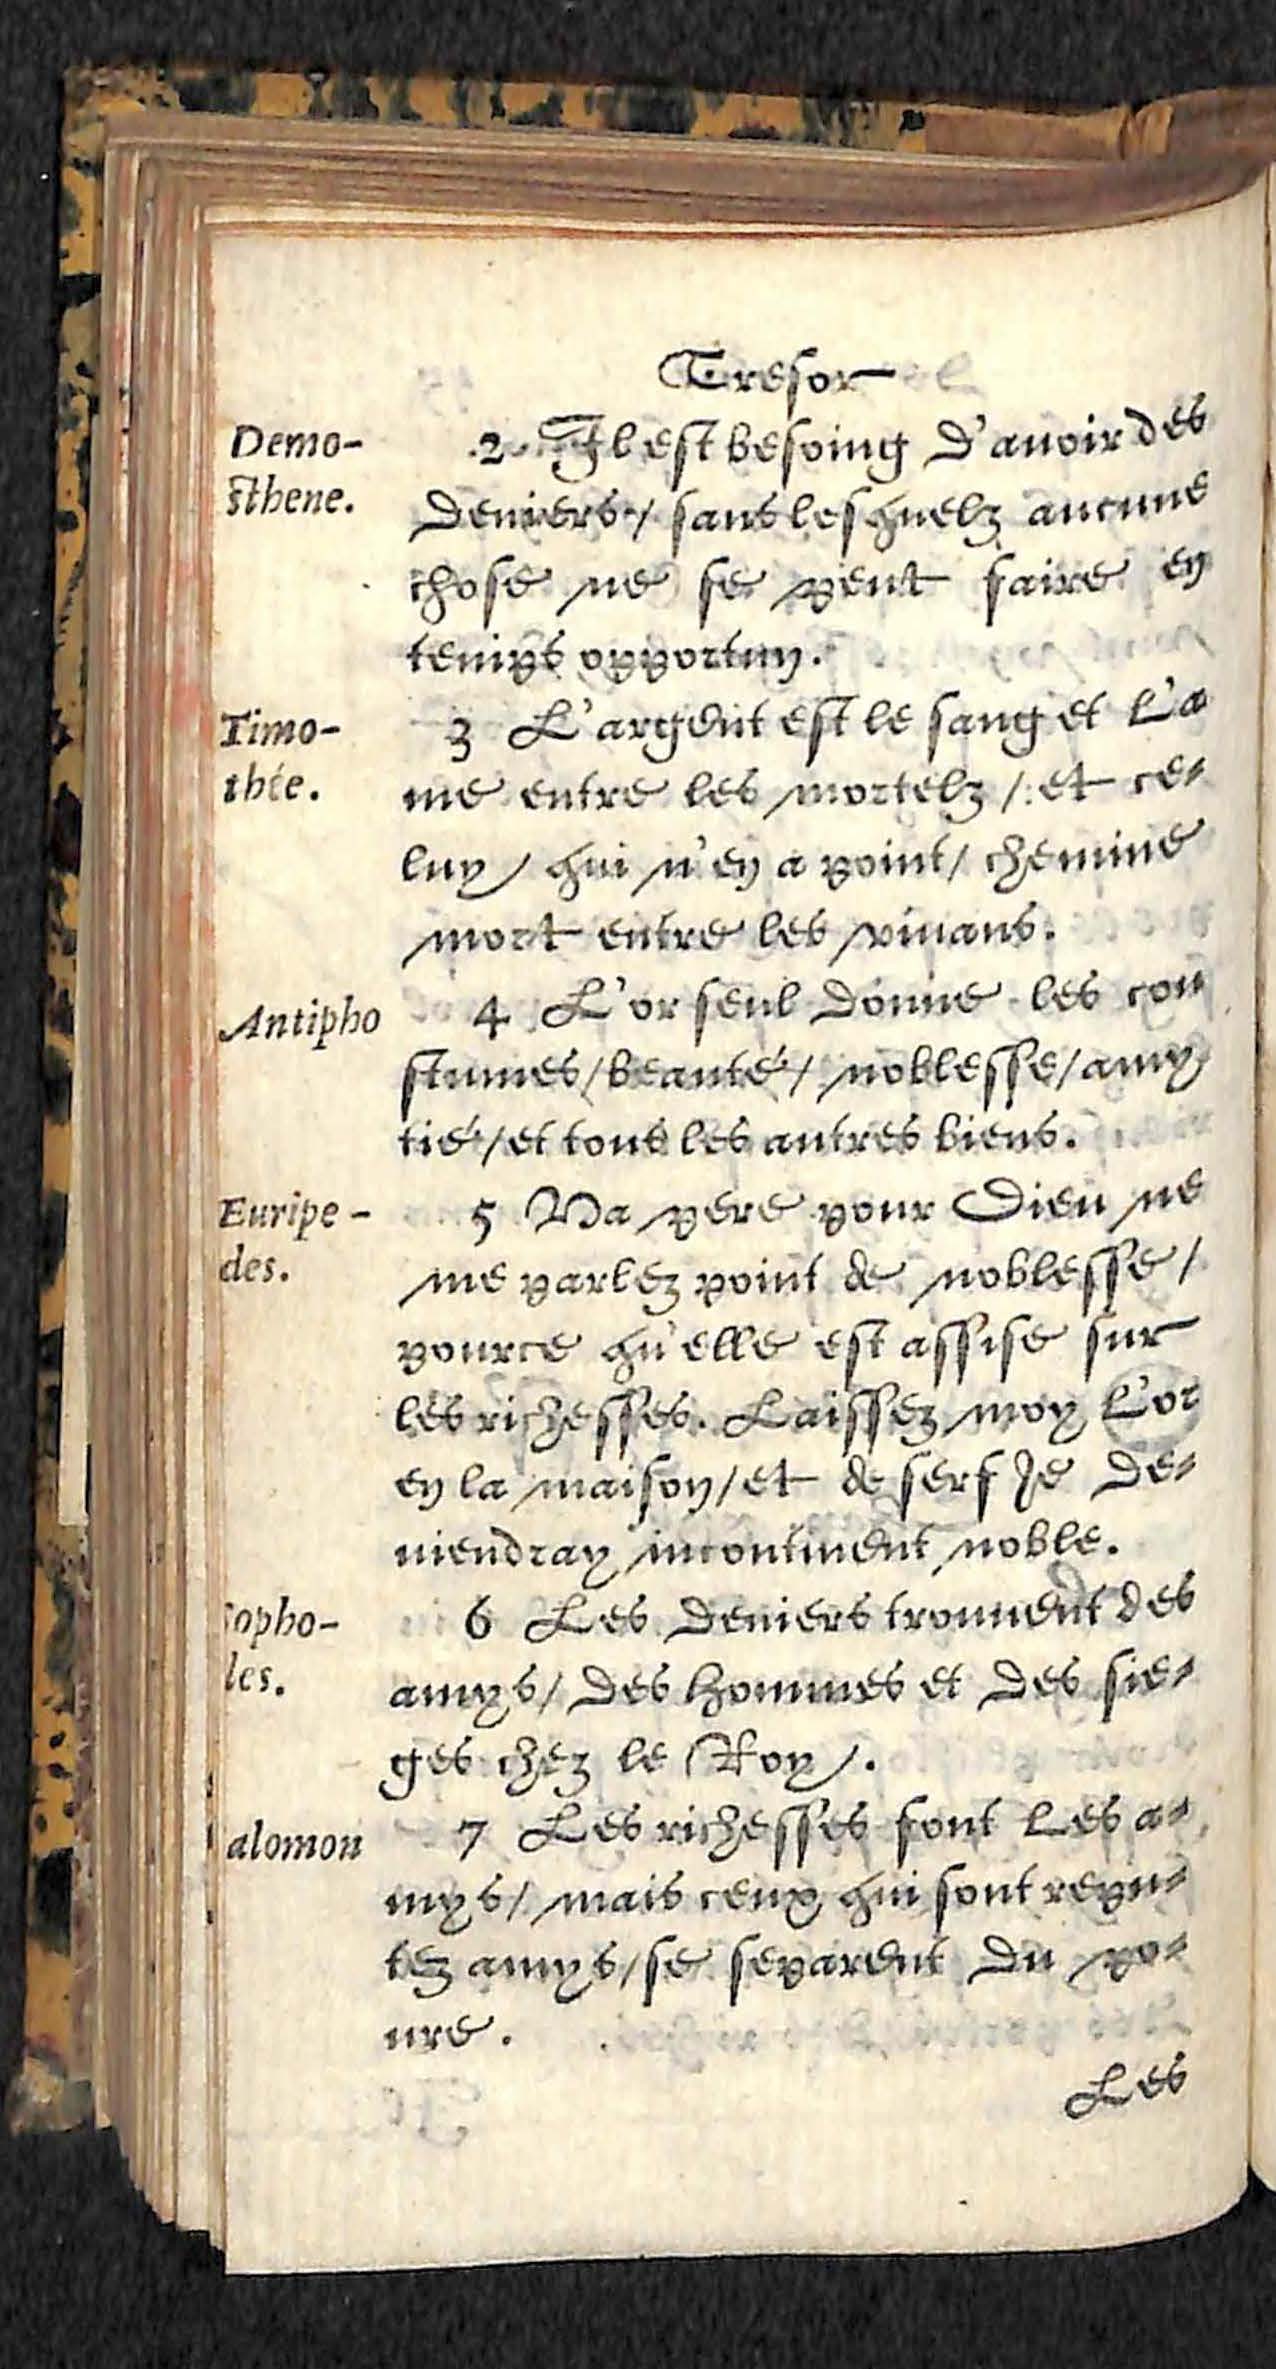 Tresor
Demo-
sthene.
2 Il est besoing d'auoir des
deniers / sans lesquelz aucune
chose ne se peut faire en
temps opportun.
Timo-
thée.
3 L'argent est le sang et l'a
me entre les mortelz / et ce-
luy / qui n'en a point / chemine
mort entre les viuans.
Antipho
4 L'or seul donne les cou
stumes / beauté / noblesse / amy
tié / et tous les autres biens.
Euripe-
des.
5 Va pere pour Dieu ne
me parlez point de noblesse /
pource qu'elle est assise sur
les richesses. Laissez moy l'or
en la maison / et de serf je de-
uiendray incontinent noble.
opho-
les.
6 Les deniers trouuent des
amys / des hommes et des sie-
ges chez le Roy.
alomon
7 Les richesses font les a-
mys / mais ceux qui sont repu-
tez amys / se separent du po-
ure.
Les